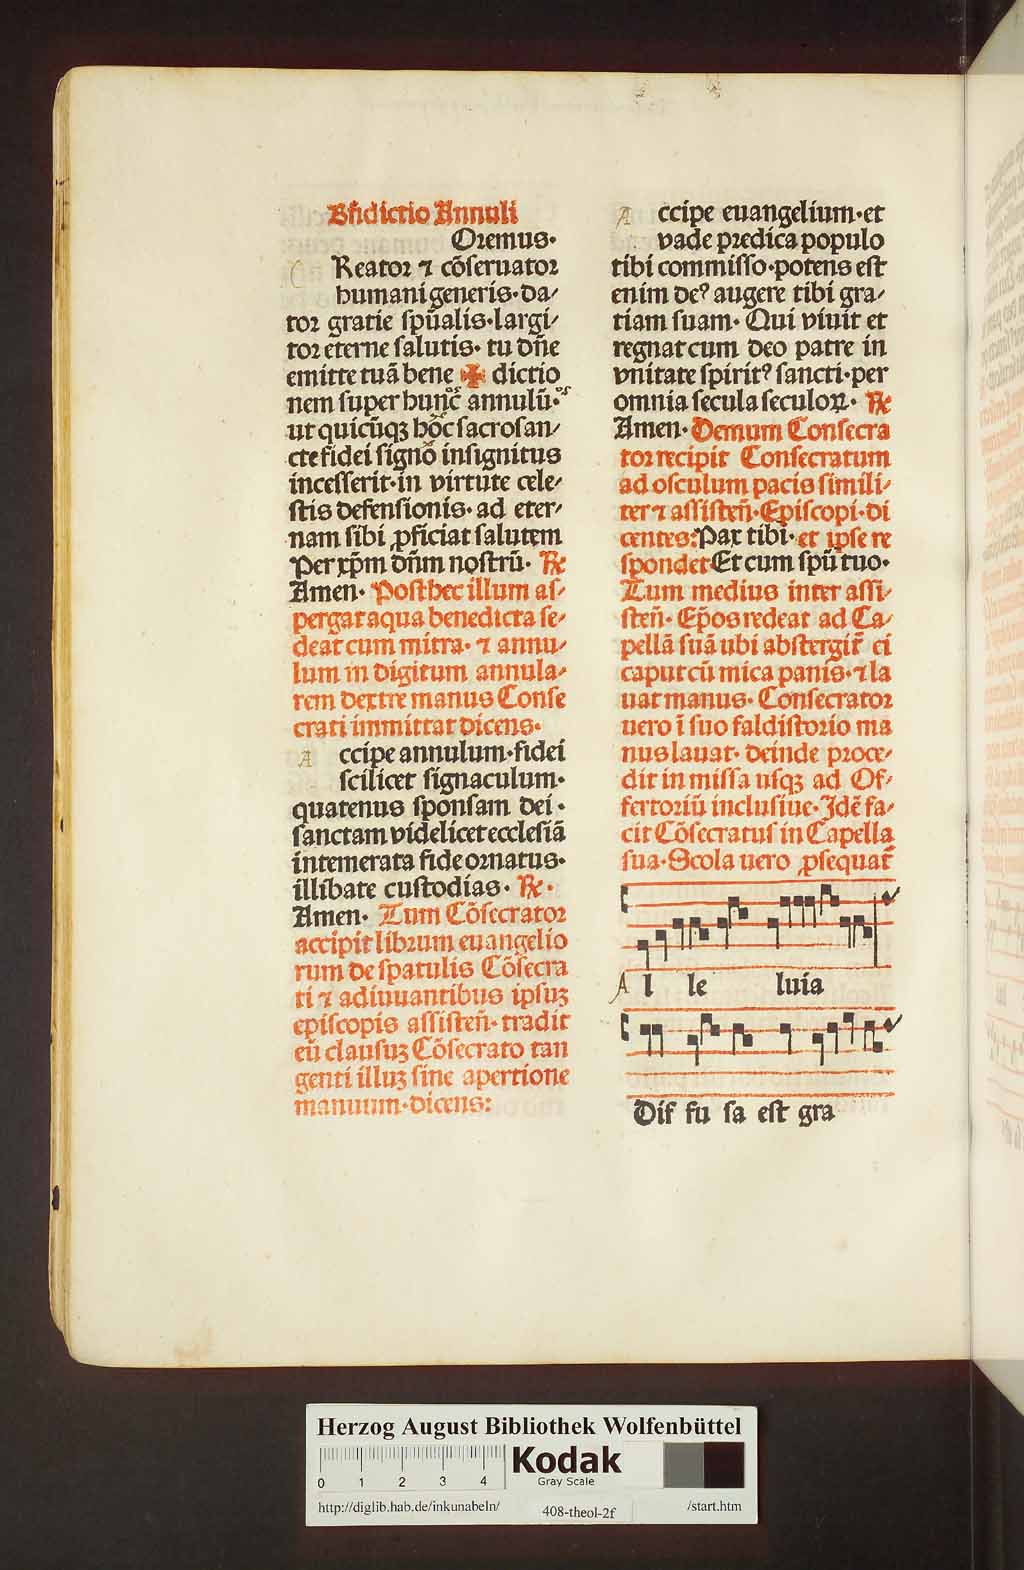 Bn̄dictio Annuli
Oremus·
C Reator ⁊ cōseruator
humani generis· da⸗
tor gratie spūalis· largi⸗
tor eterne salutis· tu dn̄e
emitte tuā bene ✠ dictio
nem super hunc̄ annulū·os
ut quicūqꝫ hoc̄ sacrosan⸗
cte fidei signō insignitus
incesserit· in virtute cele⸗
stis defensionis· ad eter⸗
nam sibi ꝓficiat salutem
Per xp̄m dn̄m nostrū· ℞
Amen· Post hec illum as⸗
pergat aqua benedicta se⸗
deat cum mitra· ⁊ annu⸗
lum in digitum annula⸗
rem dextre manus Conse
crati immittat dicens·
A ccipe annulum· fidei
scilicet signaculum·
quatenus sponsam dei·
sanctam videlicet ecclesiā
intemerata fide ornatus·
illibate custodias· ℞·
Amen· Tum Cōsecrator
accipit librum euangelio
rum de spatulis Cōsecra
ti ⁊ adiuuantibus ipsuꝫ
episcopis assisten̄· tradit
eū clausuꝫ Cōsecrato tan
genti illuꝫ sine apertione
manuum· dicens:
A ccipe euangelium· et
vade predica populo
tibi commisso· potens est
enim deꝰ augere tibi gra⸗
tiam suam· Qui viuit et
regnat cum deo patre in
vnitate spiritꝰ sancti· per
omnia secula seculoꝝ· ℞
Amen· Demum Consecra
tor recipit Consecratum
ad osculum pacis simili⸗
ter ⁊ assisten̄· Episcopi· di
centes: Pax tibi· et ipse re
spondet Et cum spū tuo·
Tum medius inter assi⸗
sten̄· Ep̄os redeat ad Ca⸗
pellā suā ubi abstergit̄ ei
caput cū mica panis· ⁊ la
uat manus· Consecrator
uero ī suo faldistorio ma
nus lauat· deinde proce⸗
dit in missa usqꝫ ad Of⸗
fertoriū inclusiue· Idē fa⸗
cit Cōsecratus in Capella
sua· Scola uero ꝓsequat̄
A l le luia
Dif fu sa est gra
Herzog August Bibliothek Wolfenbüttel
0 1 2 3 4
Kodak
Gray Scale
http://diglib.hab.de/inkunabeln/
408-theol-2f
/start.htm